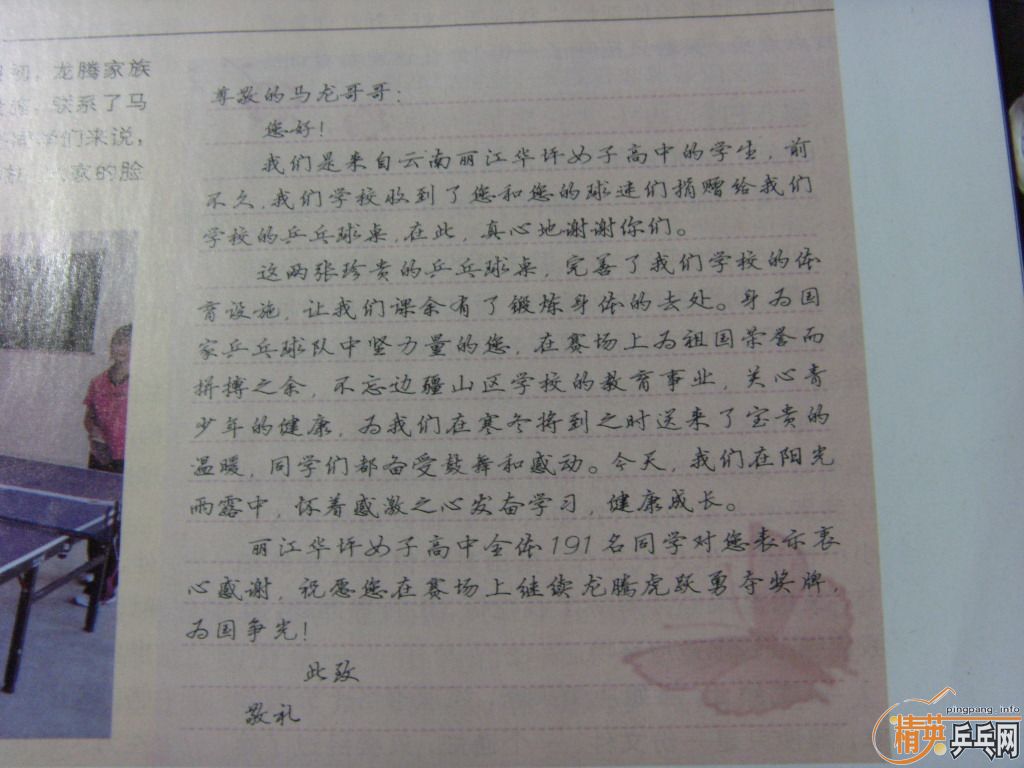 龙腾家族
联系了马
们来说，
的脸
尊敬的马龙哥哥：
您好！
我们是来自云南丽江华坪女子高中的学生，前
不久，我们学校收到了您和您的球迷们捐赠给我们
学校的乒乓球桌，在此，真心地谢谢你们。
这两张珍贵的乒乓球桌，完善了我们学校的体
育设施，让我们课余有了锻炼身体的去处。身为国
家乒乓球队中坚力量的您，在赛场上为祖国荣誉而
拼搏之余，不忘边疆山区学校的教育事业，关心青
少年的健康，为我们在寒冬将到之时送来了宝贵的
温暖，同学们都备受鼓舞和感动。今天，我们在阳光
雨露中，怀着感激之心发奋学习，健康成长。
丽江华坪女子高中全体191名同学对您表示衷
心感谢，祝愿您在赛场上继续龙腾虎跃勇夺奖牌，
为国争光！
此致
敬礼
pingpang.info
精英乒乓网